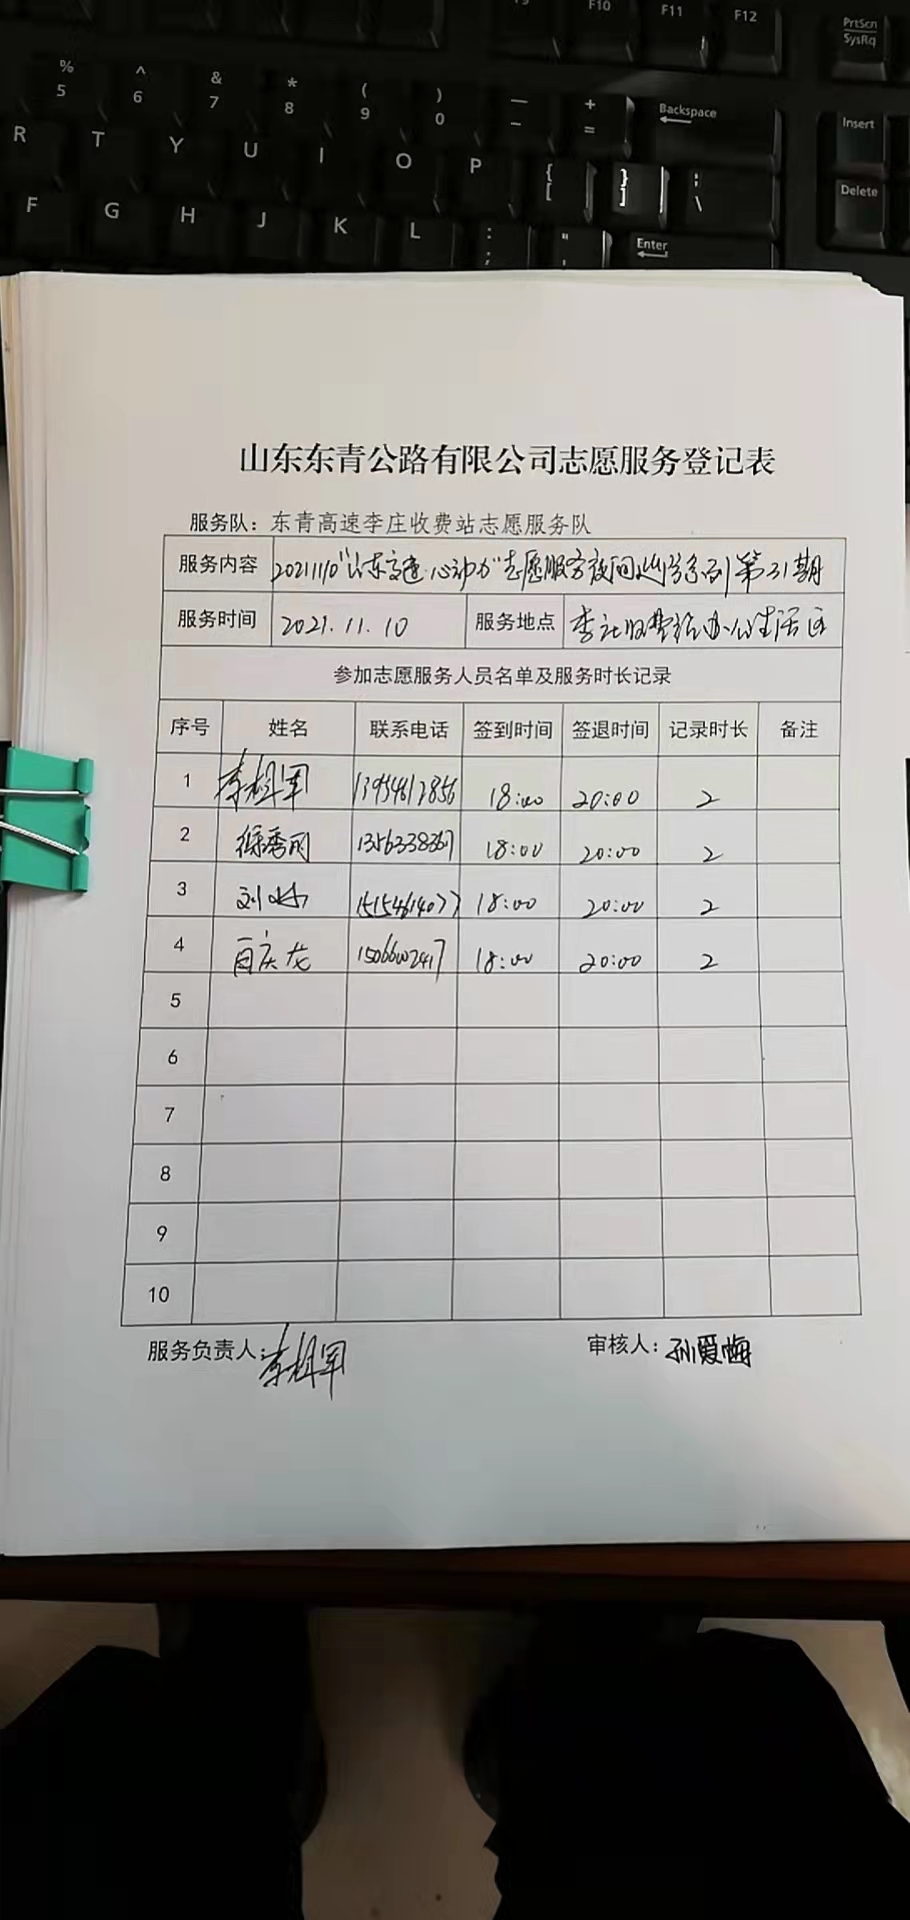 F10 F11 F12 PrtScn
SysRq
% ^ & * ( ) — + Backspace
5 6 7 8 9 0 - = Insert
R T Y U I O P { } :
[ ] \ Delete
F G H J K L : " Enter
; ,
山东东青公路有限公司志愿服务登记表
服务队：东青高速李庄收费站志愿服务队
服务内容 20211110"山东高速·心动力"志愿服务夜间巡逻系列第31期
服务时间 2021.11.10 服务地点 李庄收费站办公生活区
参加志愿服务人员名单及服务时长记录
序号 姓名 联系电话 签到时间 签退时间 记录时长 备注
1 18:00 20:00 2
2 徐秀丽 18:00 20:00 2
3 15154614077 18:00 20:00 2
4 18:00 20:00 2
5
6
7
8
9
10
服务负责人： 审核人：孙爱梅